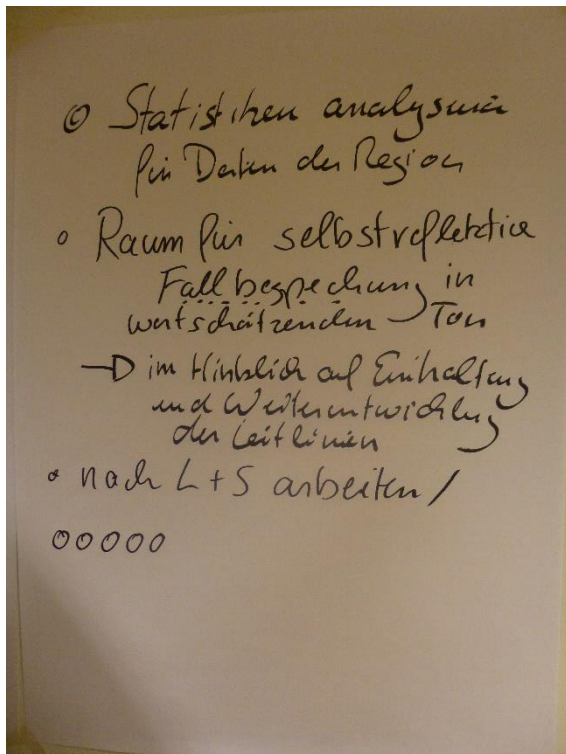 © Statistiken analysieren
für Daten der Region
° Raum für selbstreflektive
Fallbespechung in
wertschätzenden Ton
→ im Hinblick auf Einhaltung
und Weiterentwicklung
der Leitlinien
° nach L + S arbeiten /
ooooo